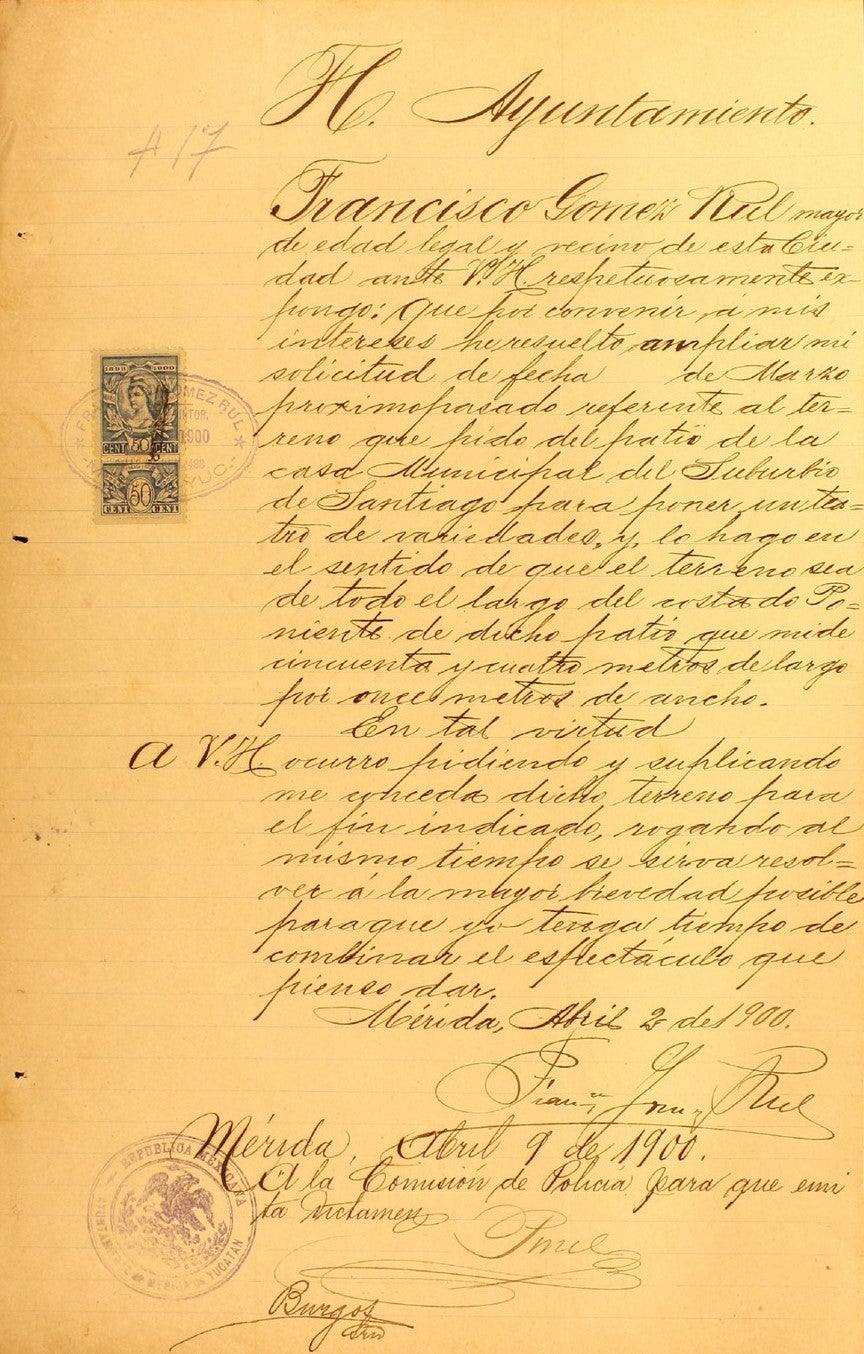 H. Ayuntamiento.
A 17
Francisco Gomez Rul mayor
de edad legal y vecino de esta Ciu=
dad ante V. H. respetuosamente ex-
pongo: Que por convenir á mis
intereses he resuelto ampliar mi
solicitud de fecha de Marzo
proximopasado referente al ter-
reno que pido del patio de la
casa Municipal del Suburbio
de Santiago para poner un tea=
tro de variedades, y, lo hago en
el sentido de que el terreno sea
de todo el largo del costado Po=
niente de dicho patio que mide
cincuenta y cuatro metros de largo
por once metros de ancho.
En tal virtud
A V. H. ocurro pidiendo y suplicando
me conceda dicho terreno para
el fin indicado, rogando al
mismo tiempo se sirva resol=
ver á la mayor brevedad posible
paraque yo tenga tiempo de
combinar el espectáculo que
pienso dar.
Mérida, Abril 2 de 1900.
Rul
Mérida, Abril 9 de 1900.
A la Comisión de Policía para que emi
ta dictamen
Burgos
Srio
1899 1900
CENT 50 CENT
50
CENT CENT
GOMEZ RUL
1900
YUC.
REPUBLICA MEXICANA
AYUNTAMIENTO DE MERIDA DE YUCATÁN